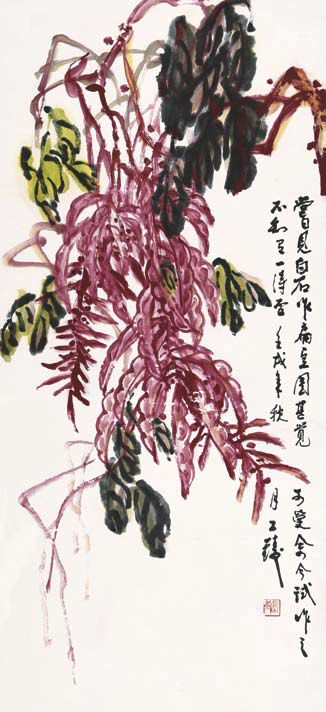 嘗見白石作扁豆圖甚覺
可愛余今試作之
不知有一得否 壬戌年秋
月工